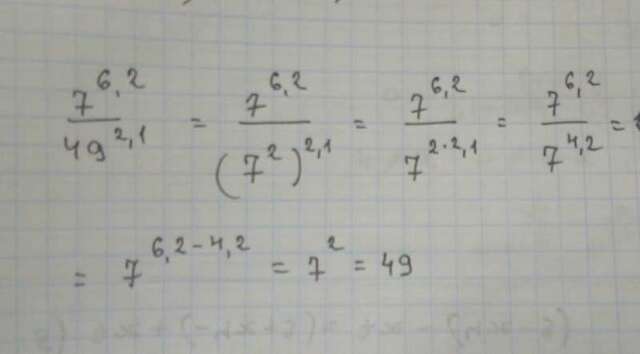 7^6,2 / 49^2,1 = 7^6,2 / (7^2)^2,1 = 7^6,2 / 7^2·2,1 = 7^6,2 / 7^4,2 =
= 7^6,2-4,2 = 7^2 = 49